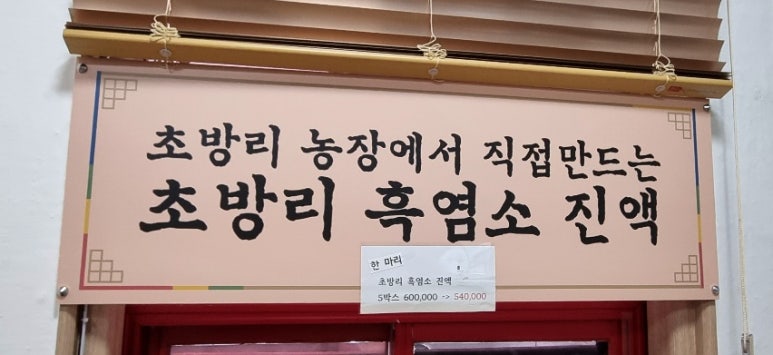 초방리 농장에서 직접만드는
초방리 흑염소 진액
한 마리
초방리 흑염소 진액
5박스 600,000 -> 540,000